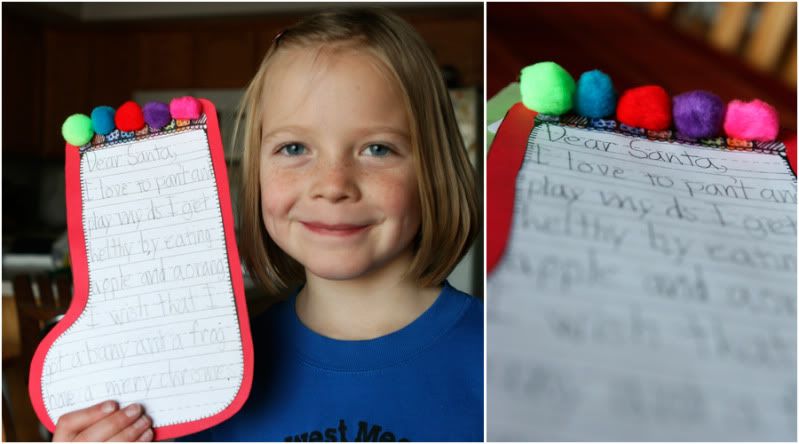 Dear Santa,
I love to pant and
play my ds I get
helthy by eating
apple and a orang
I wish that I
get a bany and a frog
have a merry chrismes
West Mea
Dear Santa,
I love to pant an
play my ds I get
helthy by eating
apple and a
I wish that